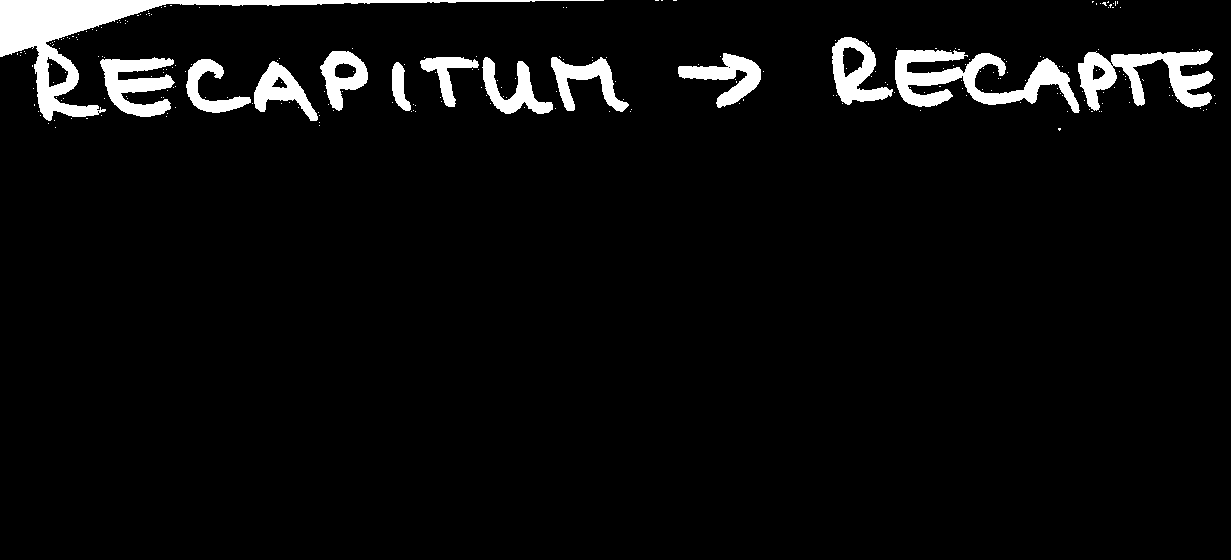 RECAPITUM → RECAPTE